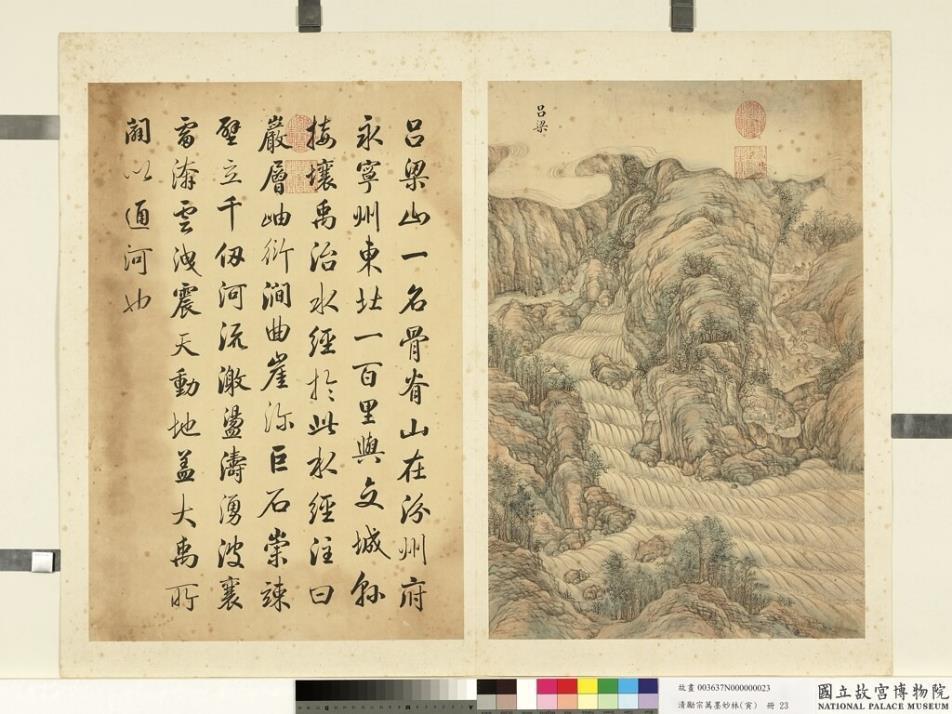 呂梁
呂梁山一名骨脊山在汾州府
永寧州東北一百里與交城縣
接壤禹治水經於此水經注曰
巖層岫衍澗曲崖深巨石崇竦
壁立千仞河流激盪濤湧波襄
雷渀雲洩震天動地蓋大禹所
闢以通河也
故畫 003637N000000023
清勵宗萬墨妙林(寅) 冊 23
國立故宮博物院
NATIONAL PALACE MUSEUM